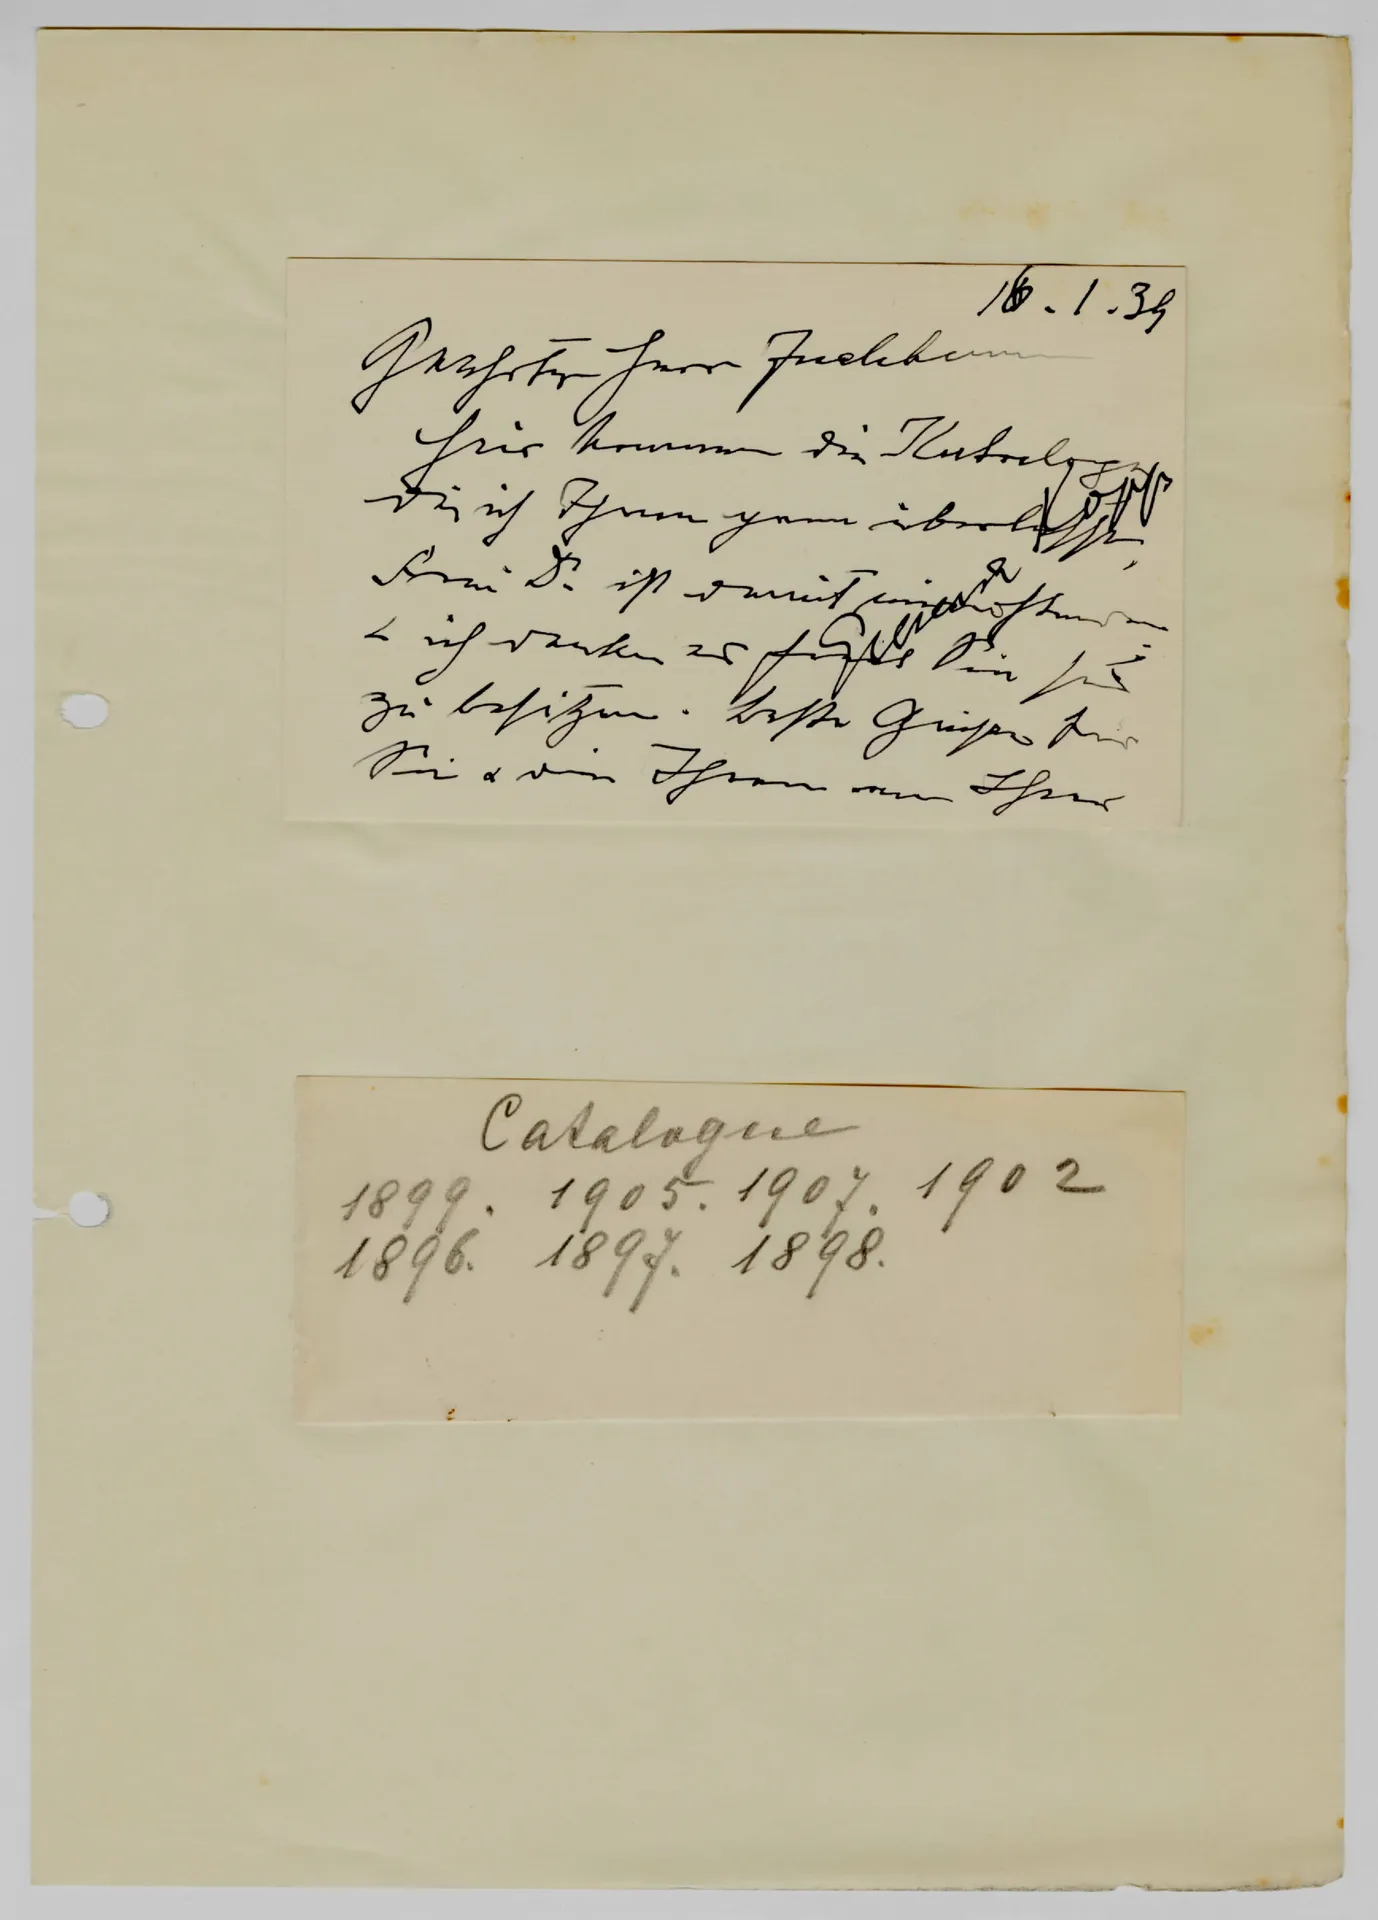 16.1.39
Geehrter Herr
hier kommen die Kataloge
die ich Ihnen gern überlasse,
Frau D. ist damit einverstanden
& ich danke es Sie für
zu besitzen. Beste Grüße für
Sie & die Ihren von Ihrer
Catalogue
1899. 1905. 1907. 1902
1896. 1897. 1898.